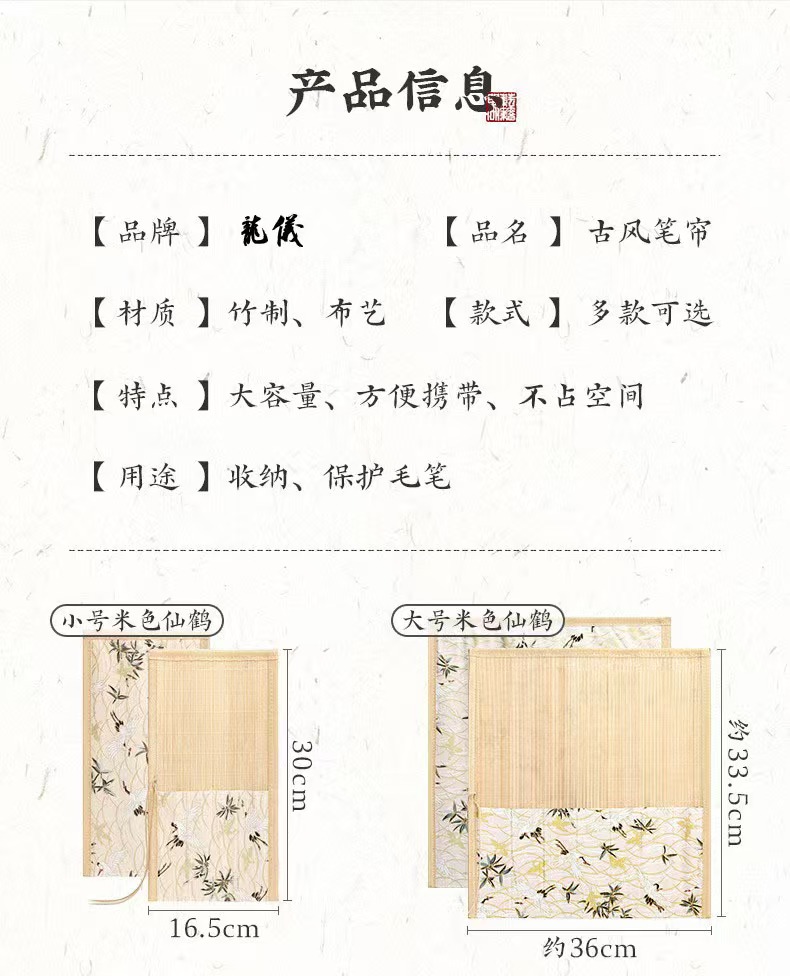 产品信息
【品牌】龍儀 【品名】古风笔帘
【材质】竹制、布艺 【款式】多款可选
【特点】大容量、方便携带、不占空间
【用途】收纳、保护毛笔
小号米色仙鹤 大号米色仙鹤
30cm
约33.5cm
16.5cm
约36cm